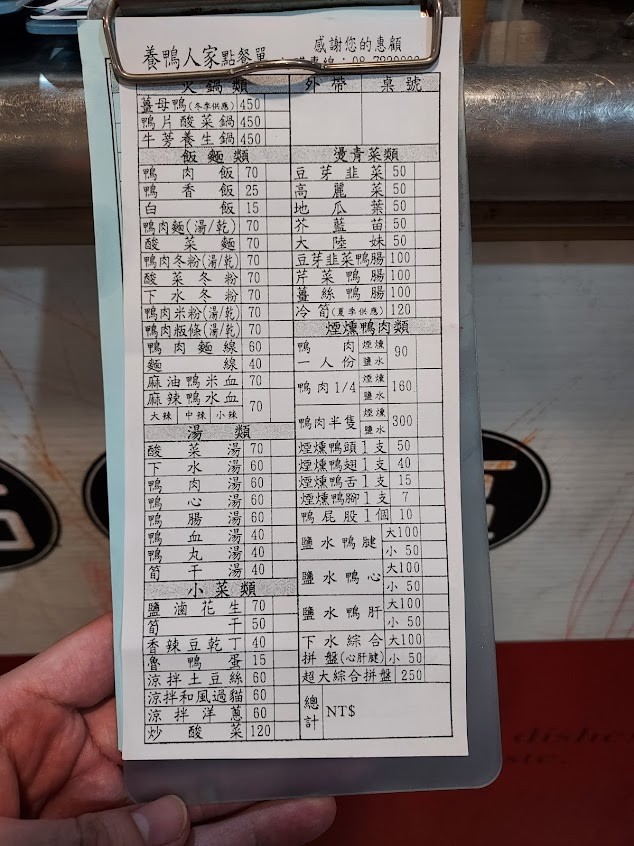 養鴨人家點餐單
感謝您的惠顧
火鍋類
薑母鴨(冬季供應) 450
鴨片酸菜鍋 450
牛蒡養生鍋 450
飯麵類
鴨肉飯 70
鴨香飯 25
白飯 15
鴨肉麵(湯/乾) 70
酸菜麵 70
鴨肉冬粉(湯/乾) 70
酸菜冬粉 70
下水冬粉 70
鴨肉米粉(湯/乾) 70
鴨肉粄條(湯/乾) 70
鴨肉麵線 60
麵線 40
麻油鴨米血 70
麻辣鴨水血 70
大辣 中辣 小辣
湯類
酸菜湯 70
下水湯 60
鴨肉湯 60
鴨心湯 60
鴨腸湯 60
鴨血湯 40
鴨丸湯 40
筍干湯 40
小菜類
鹽滷花生 70
筍干 50
香辣豆乾丁 40
魯鴨蛋 15
涼拌土豆絲 60
涼拌和風過貓 60
涼拌洋蔥 60
炒酸菜 120
外帶 桌號
燙青菜類
豆芽韭菜 50
高麗菜 50
地瓜葉 50
芥藍苗 50
大陸妹 50
豆芽韭菜鴨腸 100
芹菜鴨腸 100
薑絲鴨腸 100
冷筍(夏季供應) 120
煙燻鴨肉類
鴨肉一人份 煙燻 鹽水 90
鴨肉1/4 煙燻 鹽水 160
鴨肉半隻 煙燻 鹽水 300
煙燻鴨頭1支 50
煙燻鴨翅1支 40
煙燻鴨舌1支 15
煙燻鴨腳1支 7
鴨屁股1個 10
鹽水鴨腱 大100 小50
鹽水鴨心 大100 小50
鹽水鴨肝 大100 小50
下水綜合 大100
拼盤(心肝腱) 小50
超大綜合拼盤 250
總計 NT$